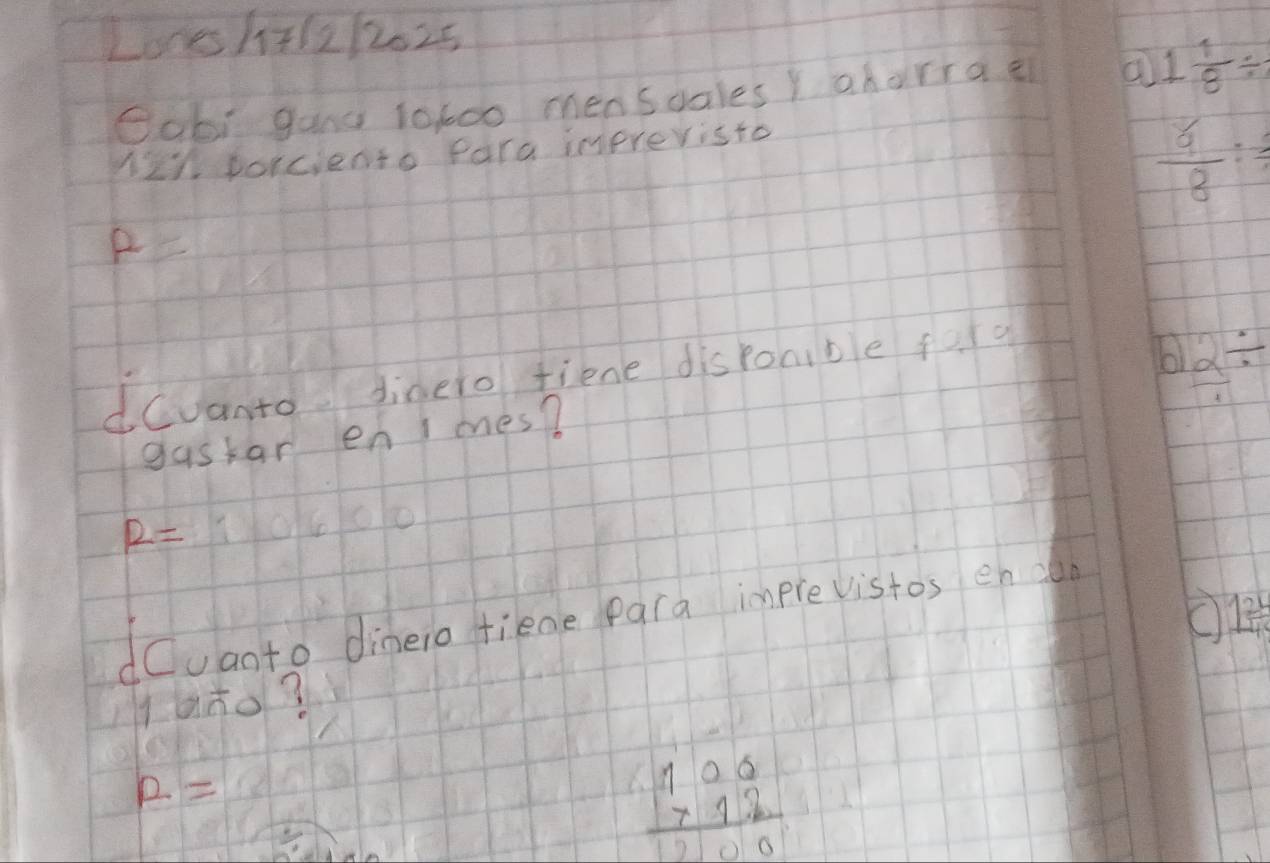 Lones/17/2/2025
Gabi gana 10600 mensuales y ahorra el
12% porciento para imprevisto
R=
¿Cuanto dinero tiene disponible para
gastar en 1 mes?
R= 10600
¿Cuanto dinero tiene para imprevistos en
1 año?
R=
100
x 12
200
a) 1 1/8 ÷
9/8 ÷
b) 2 ÷
c) 12